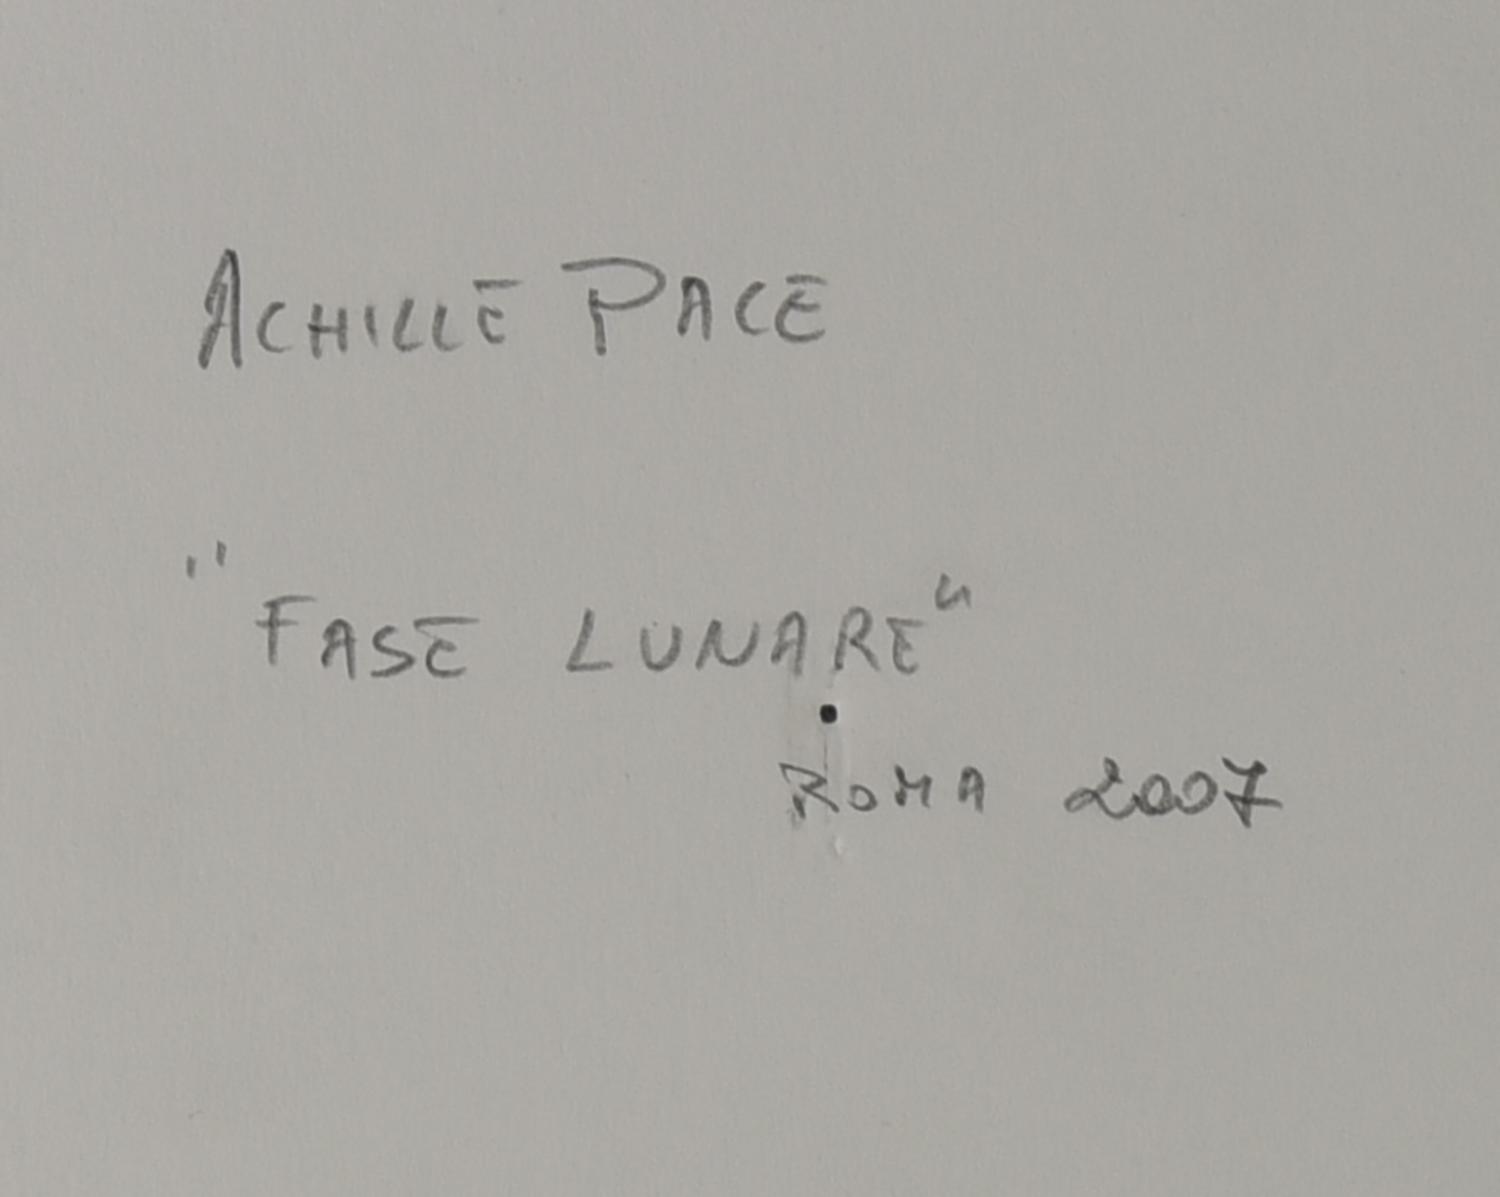 ACHILLE PACE
"FASE LUNARE"
ROMA 2007